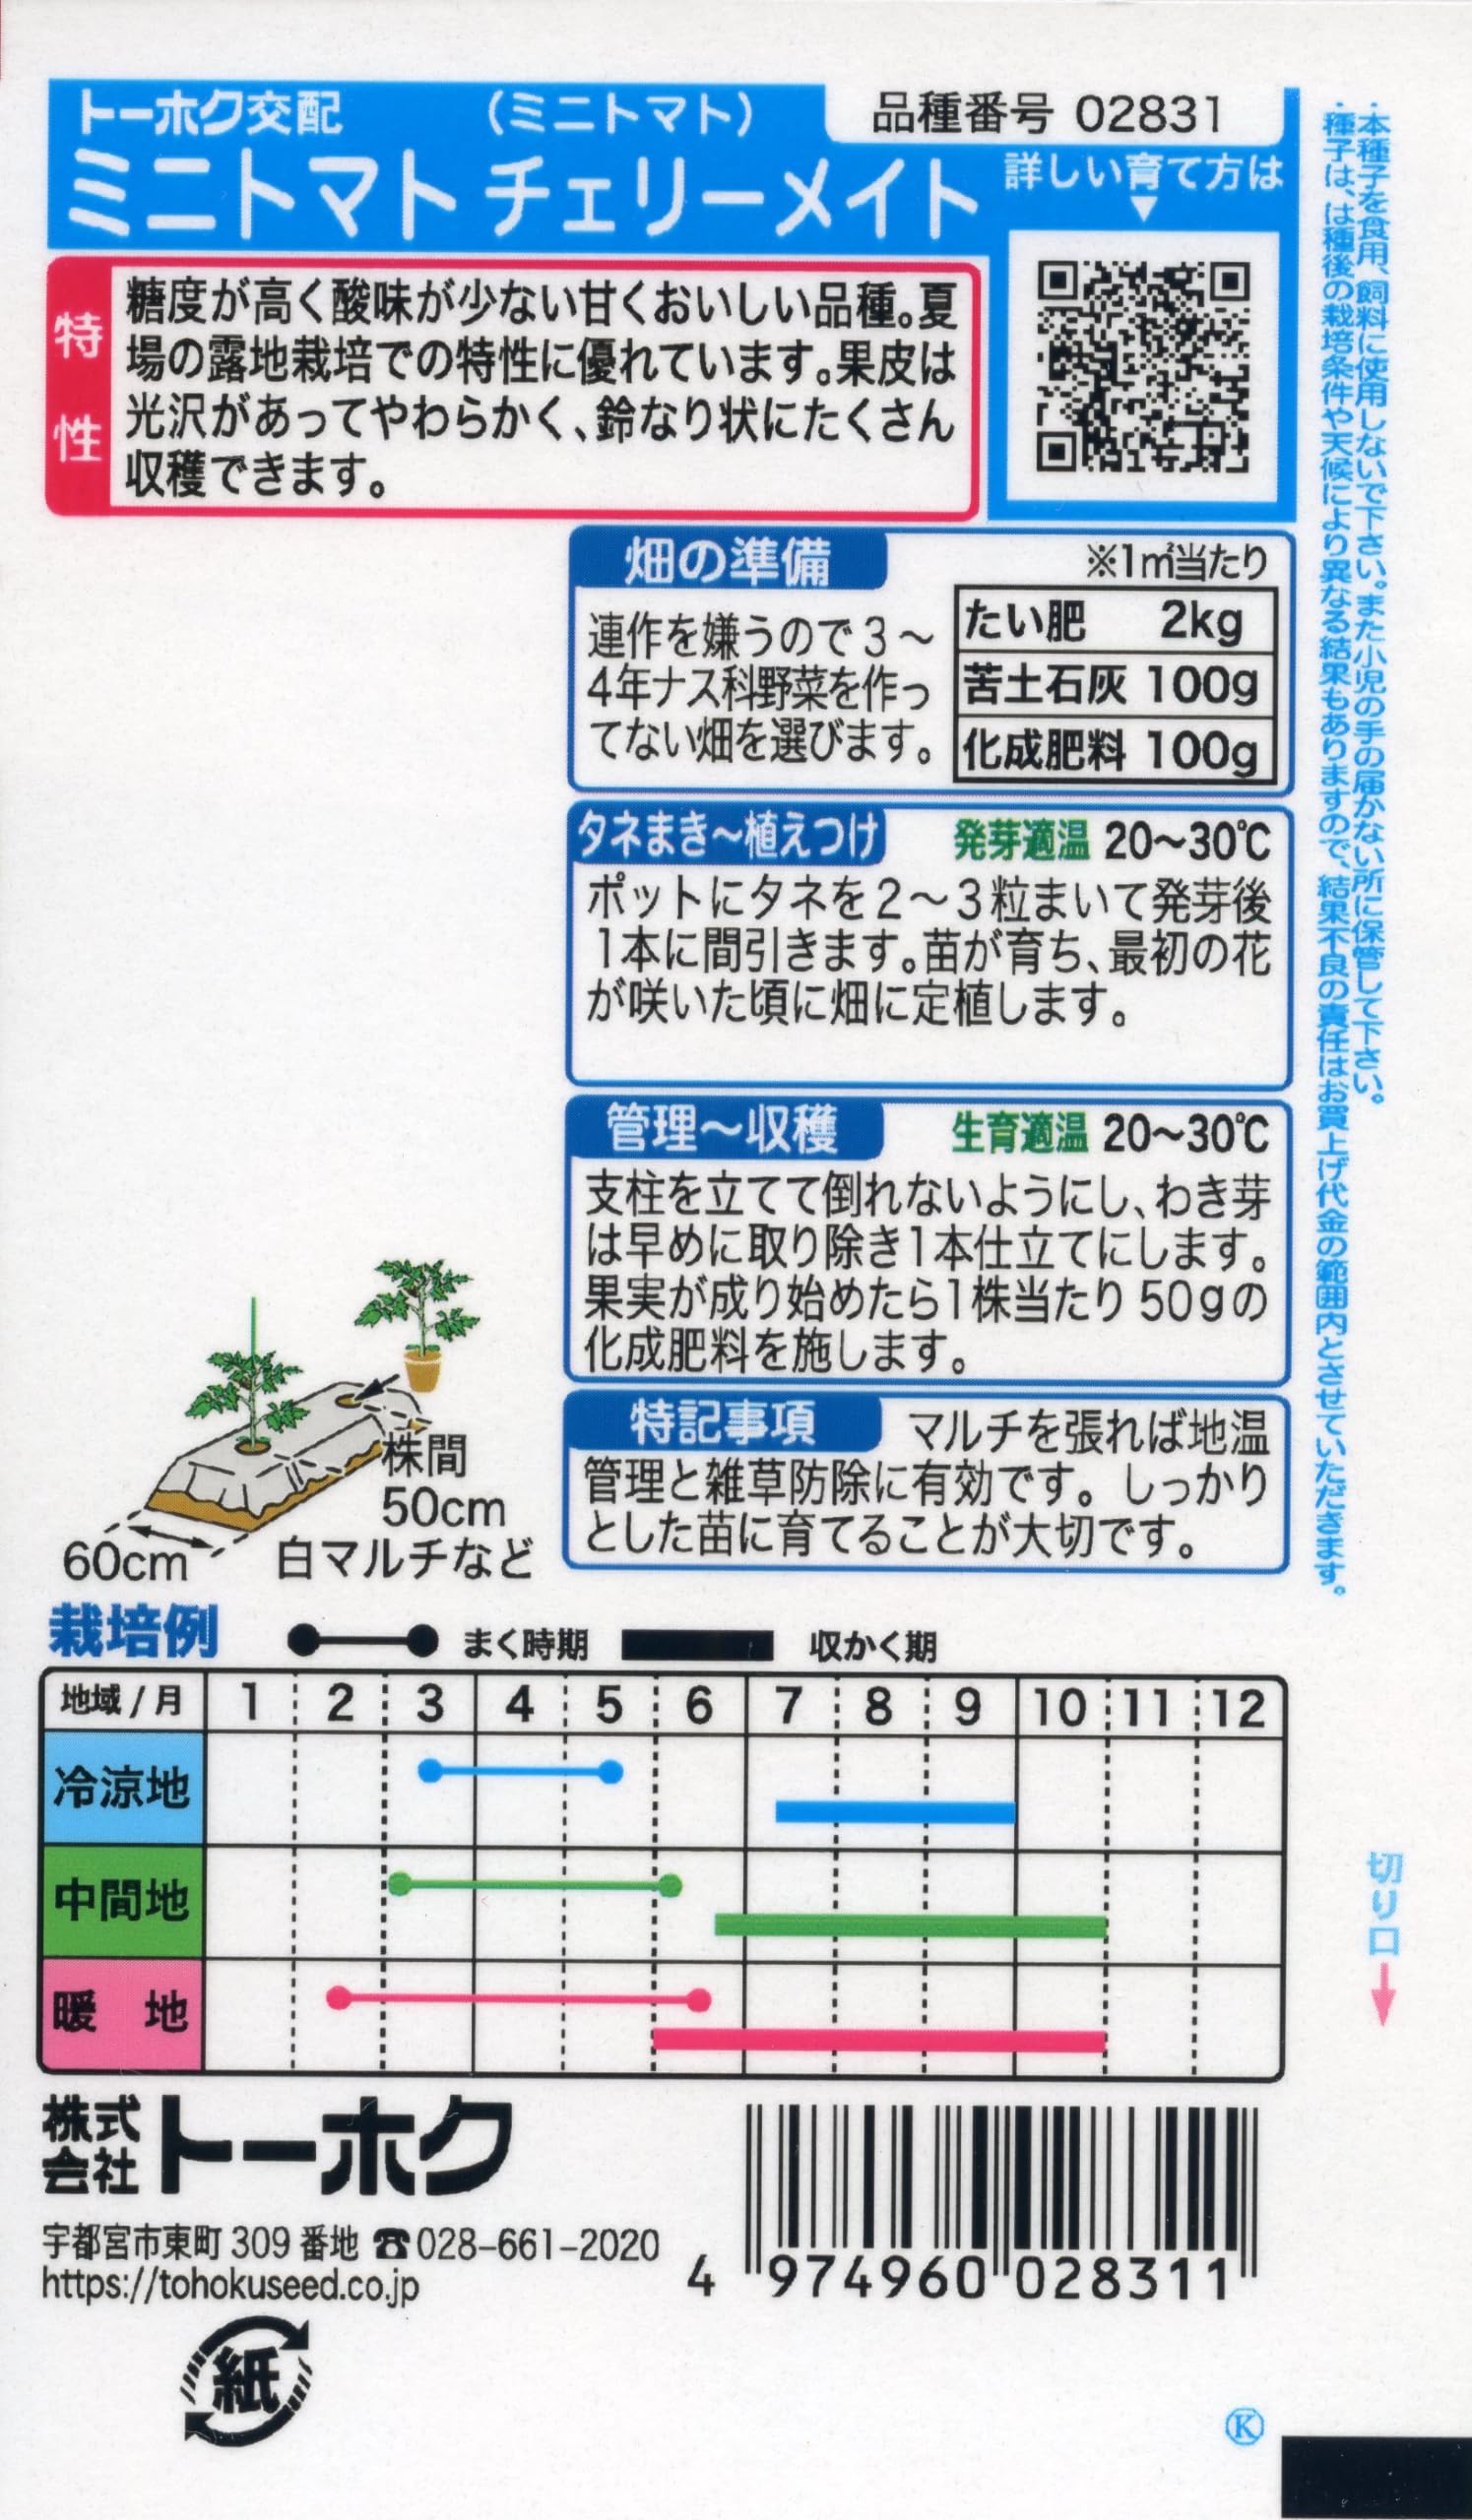 トーホク交配 (ミニトマト) 品種番号 02831
ミニトマト チェリーメイト
詳しい育て方は
▼
特性
糖度が高く酸味が少ない甘くおいしい品種。夏
場の露地栽培での特性に優れています。果皮は
光沢があってやわらかく、鈴なり状にたくさん
収穫できます。
畑の準備
※1㎡当たり
連作を嫌うので3～
4年ナス科野菜を作っ
てない畑を選びます。
たい肥 2kg
苦土石灰 100g
化成肥料 100g
タネまき～植えつけ 発芽適温 20～30℃
ポットにタネを2～3粒まいて発芽後
1本に間引きます。苗が育ち、最初の花
が咲いた頃に畑に定植します。
管理～収穫 生育適温 20～30℃
支柱を立てて倒れないようにし、わき芽
は早めに取り除き1本仕立てにします。
果実が成り始めたら1株当たり50gの
化成肥料を施します。
特記事項 マルチを張れば地温
管理と雑草防除に有効です。しっかり
とした苗に育てることが大切です。
株間
50cm
60cm 白マルチなど
・本種子を食用、飼料に使用しないで下さい。また小児の手の届かない所に保管して下さい。
・種子は、は種後の栽培条件や天候により異なる結果もありますので、結果不良の責任はお買上げ代金の範囲内とさせていただきます。
栽培例 まく時期 収かく期
地域/月 1 2 3 4 5 6 7 8 9 10 11 12
冷涼地
中間地
暖 地
切り口
株式会社 トーホク
宇都宮市東町 309 番地 ☎028-661-2020
https://tohokuseed.co.jp
4 974960 028311
紙
Ⓚ